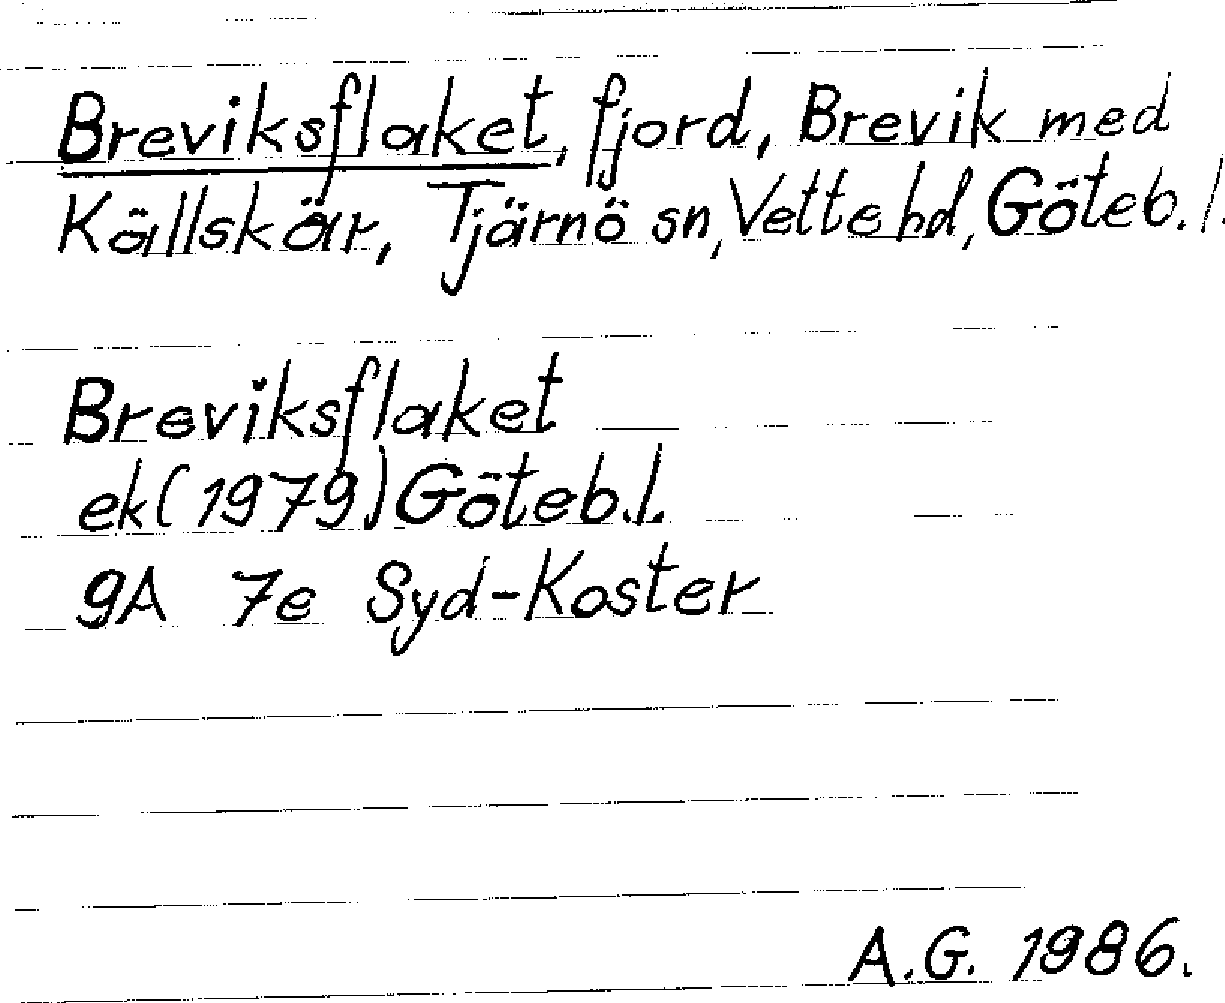 Breviksflaket, fjord, Brevik med
Källskär, Tjärnö sn, Vette hd, Göteb. l.
Breviksflaket
ek (1979) Göteb. l.
9A 7e Syd-Koster
A.G. 1986.